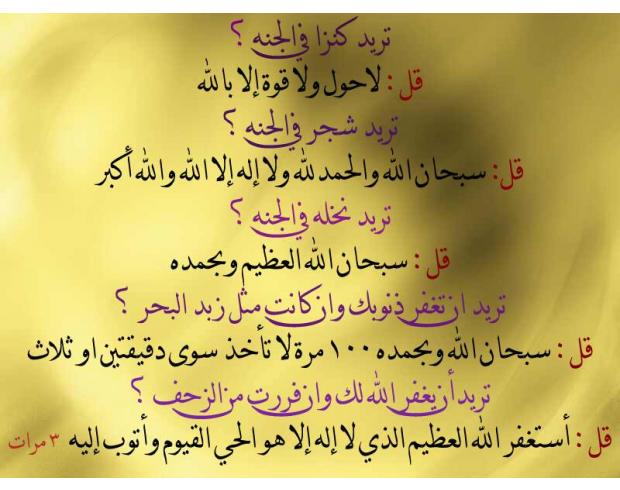 تريد كنزا في الجنه ؟
قل : لا حول ولا قوة إلا بالله
تريد شجر في الجنه ؟
قل : سبحان الله والحمد لله ولا إله إلا الله والله أكبر
تريد نخله في الجنه ؟
قل : سبحان الله العظيم وبحمده
تريد ان تغفر ذنوبك وان كانت مثل زبد البحر ؟
قل : سبحان الله وبحمده ١٠٠ مرة لا تأخذ سوى دقيقتين او ثلاث
تريد أن يغفر الله لك وان فررت من الزحف ؟
قل : أستغفر الله العظيم الذي لا إله إلا هو الحي القيوم وأتوب إليه ٣ مرات